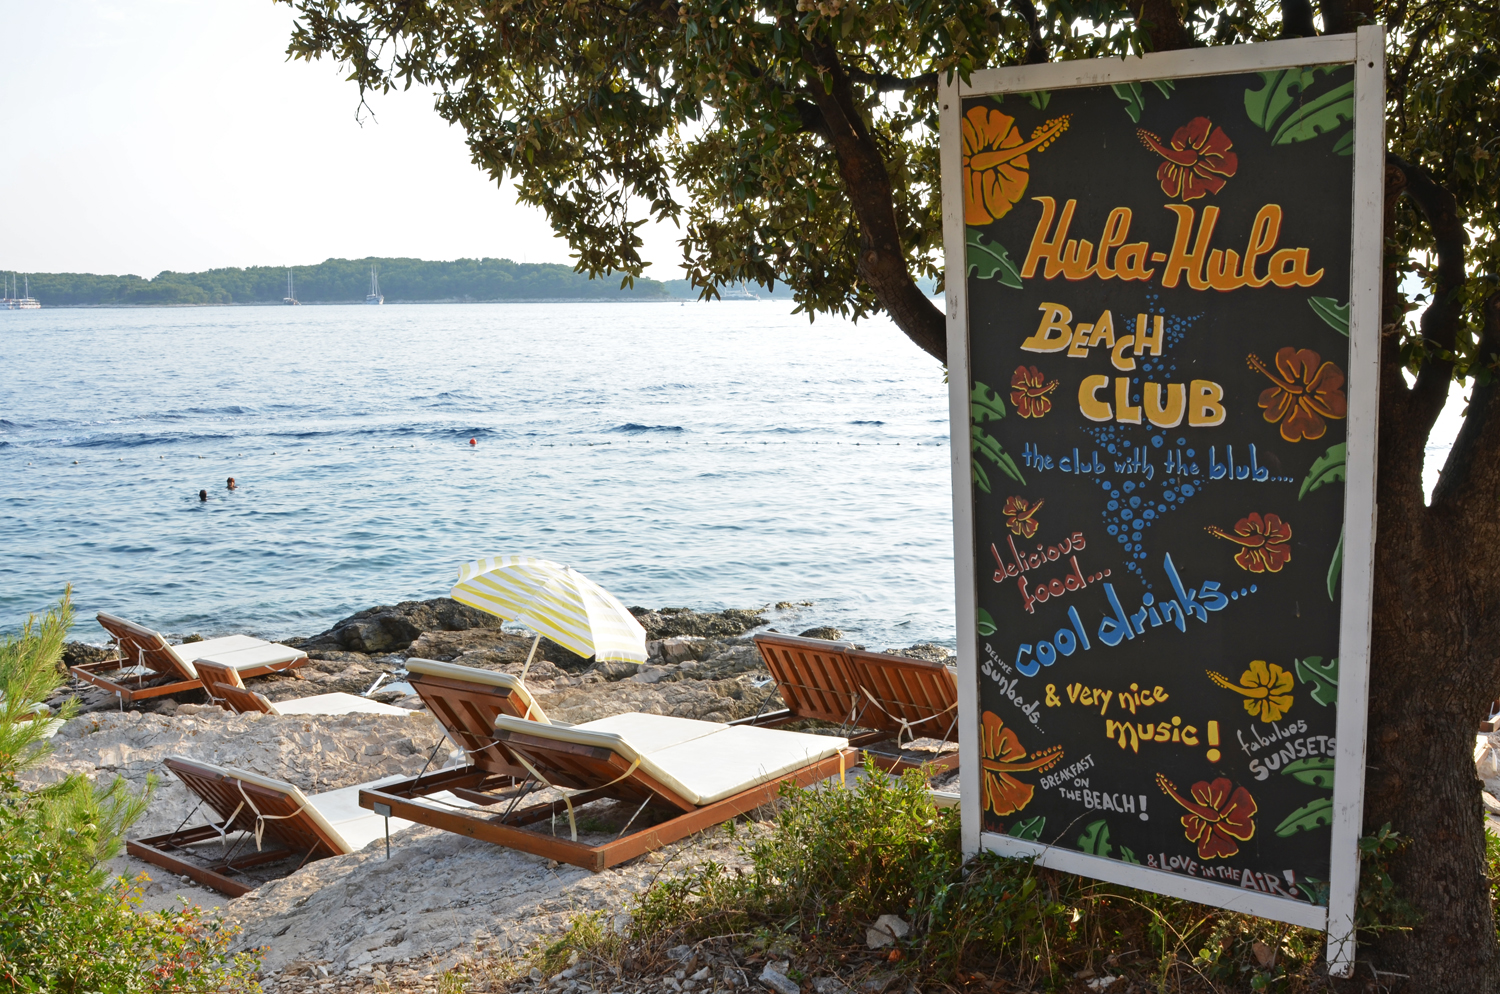 Hula-Hula
BEACH
CLUB
the club with the blub....
delicious
food...
cool drinks...
DELUXE
Sunbeds...
& very nice
music!
fabuluos
SUNSETS
BREAKFAST
ON
THE BEACH!
& LOVE IN THE AIR!